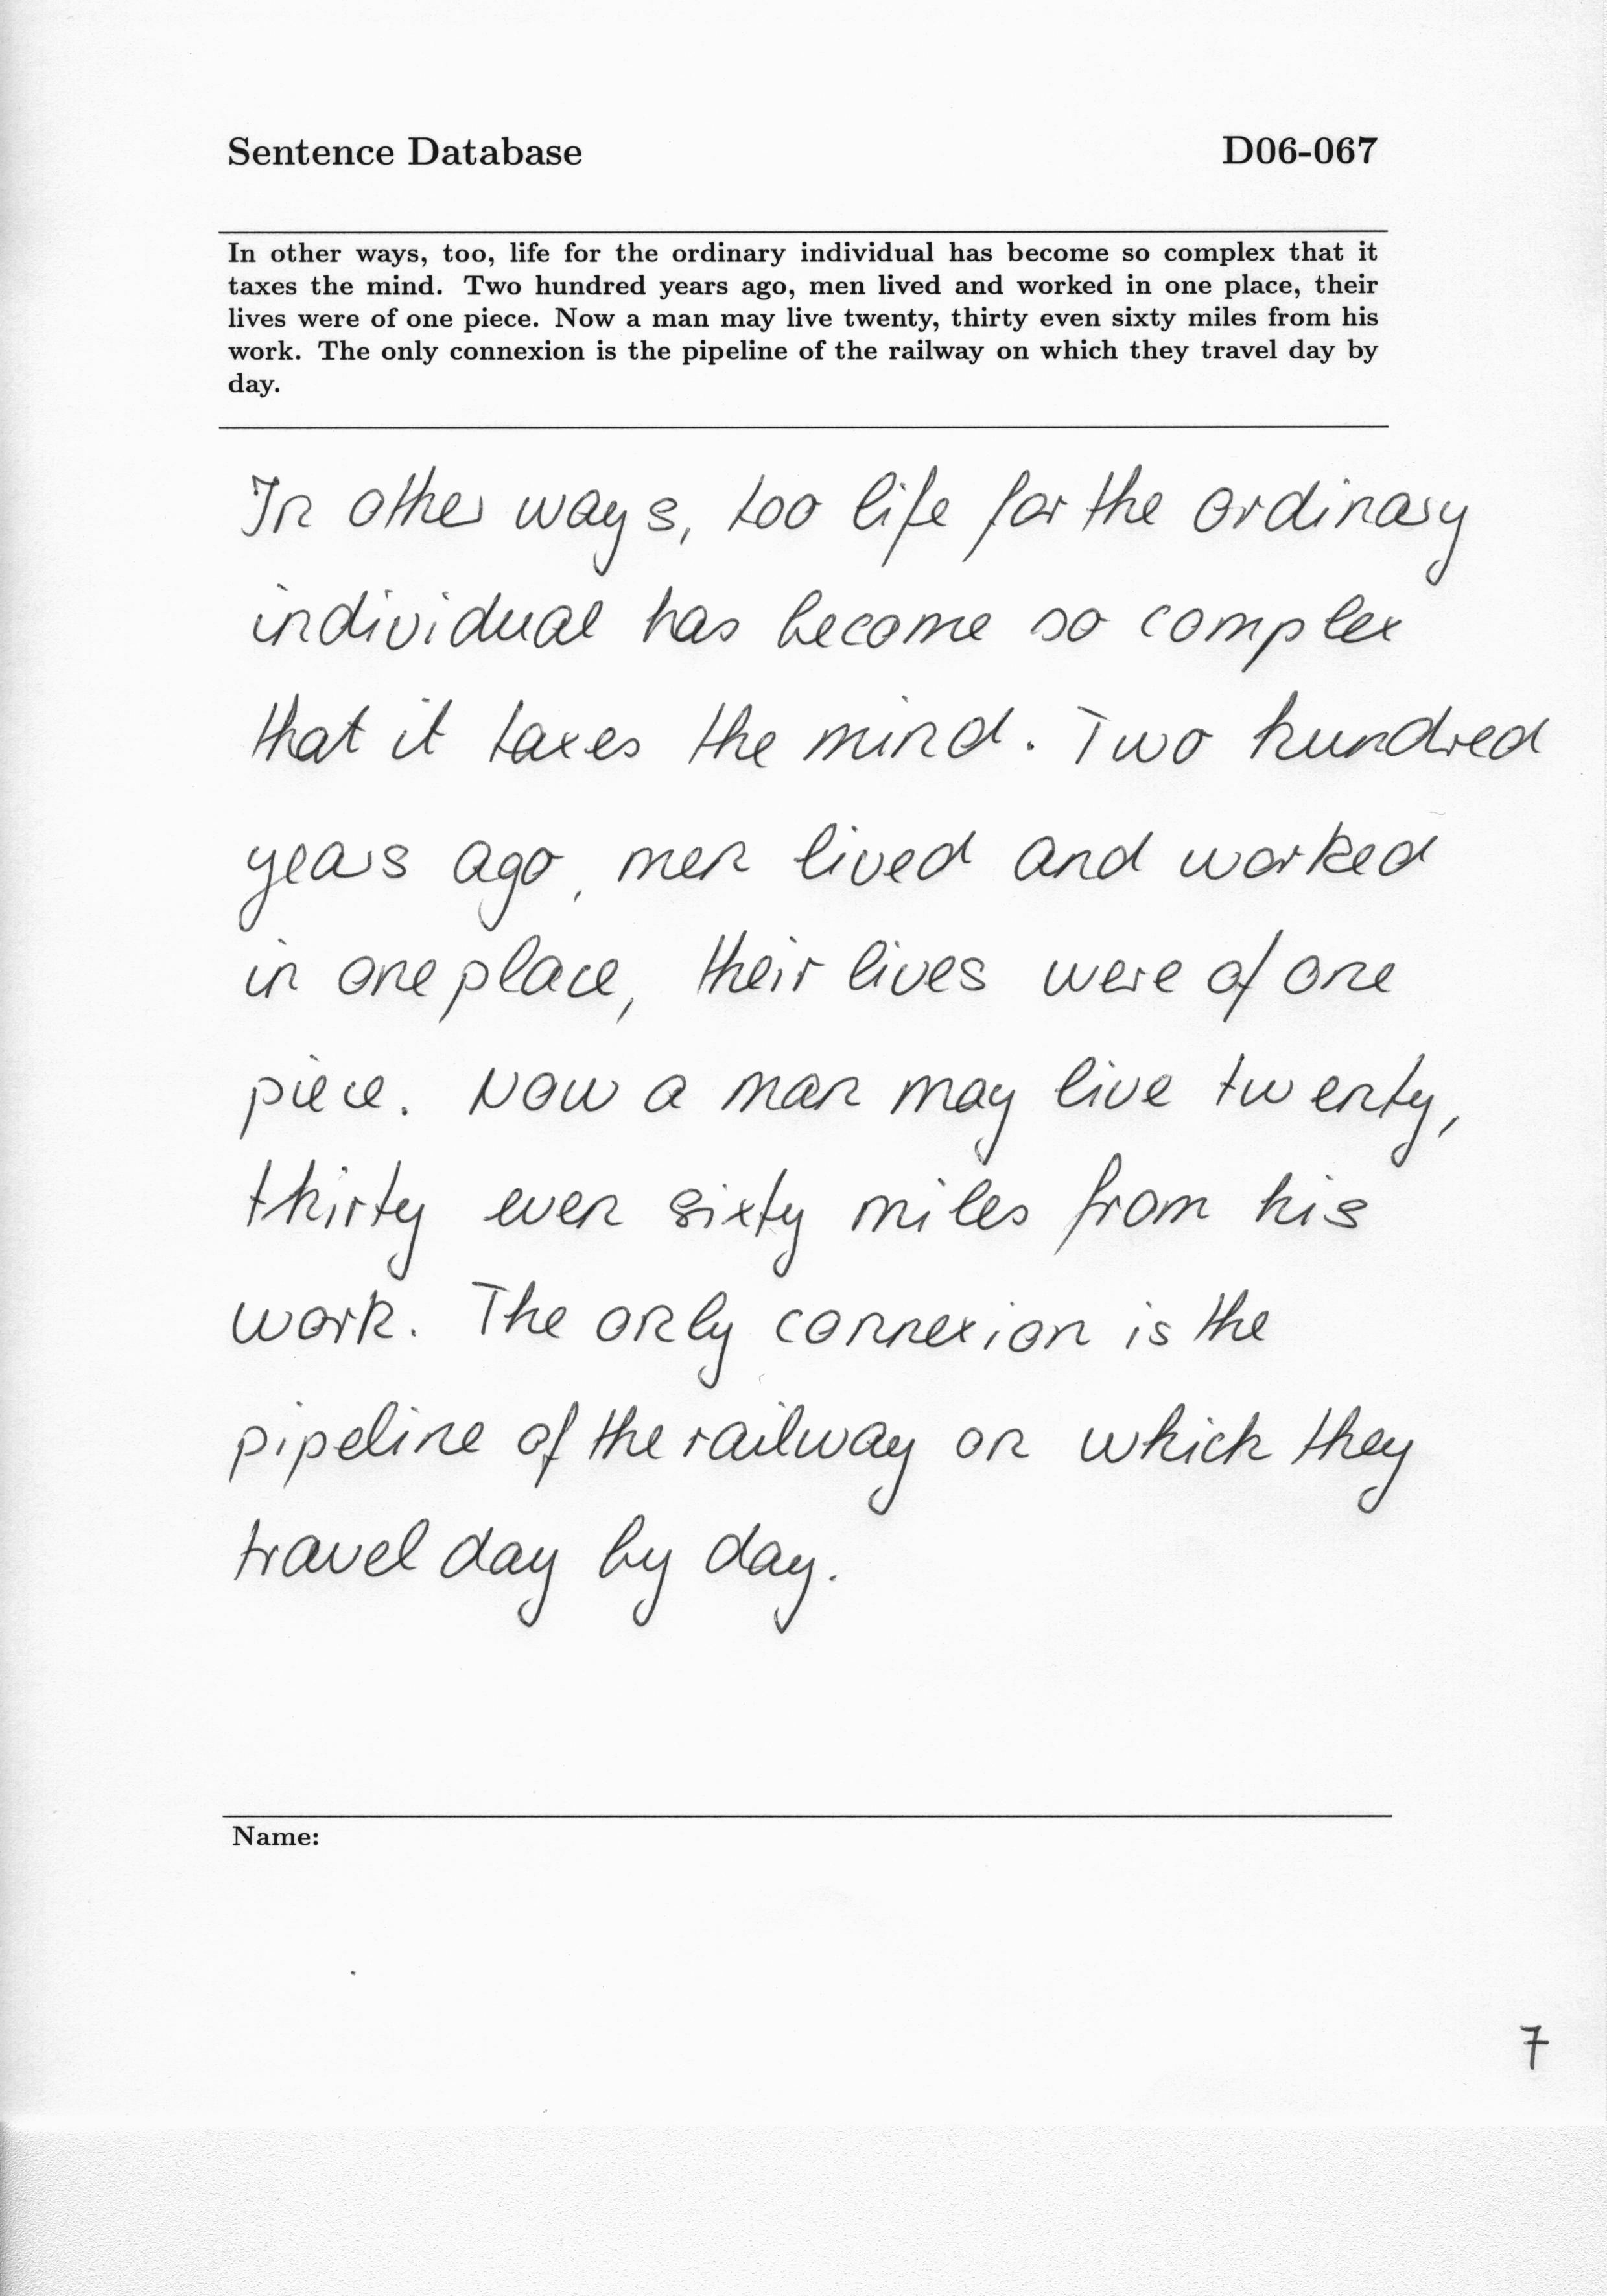 Sentence Database D06-067
In other ways, too, life for the ordinary individual has become so complex that it
taxes the mind. Two hundred years ago, men lived and worked in one place, their
lives were of one piece. Now a man may live twenty, thirty even sixty miles from his
work. The only connexion is the pipeline of the railway on which they travel day by
day.
In other ways, too life for the ordinary
individual has become so complex
that it taxes the mind. Two hundred
years ago, men lived and worked
in one place, their lives were of one
piece. Now a man may live twenty,
thirty even sixty miles from his
work. The only connexion is the
pipeline of the railway on which they
travel day by day.
Name:
7